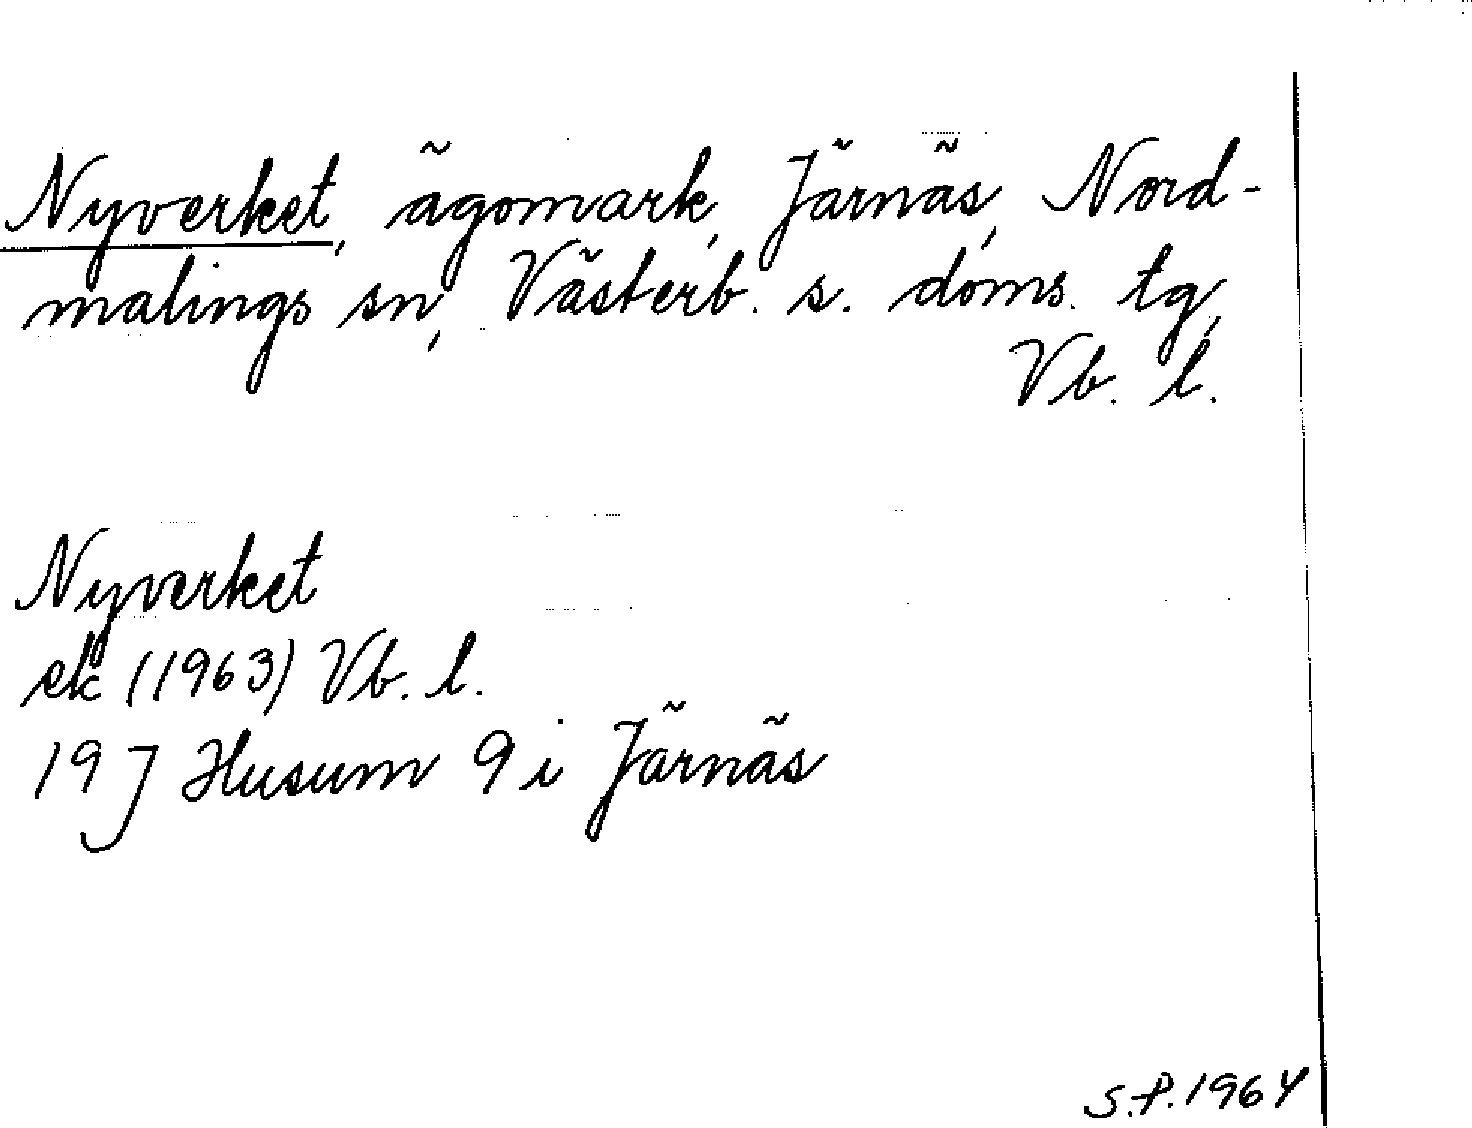 Nyverket, ägomark, Järnäs, Nord-
malings sn, Västerb. s. doms. tg,
Vb. l.
Nyverket
ek (1963) Vb. l.
19 J Husum 9 i Järnäs
S.P. 1964